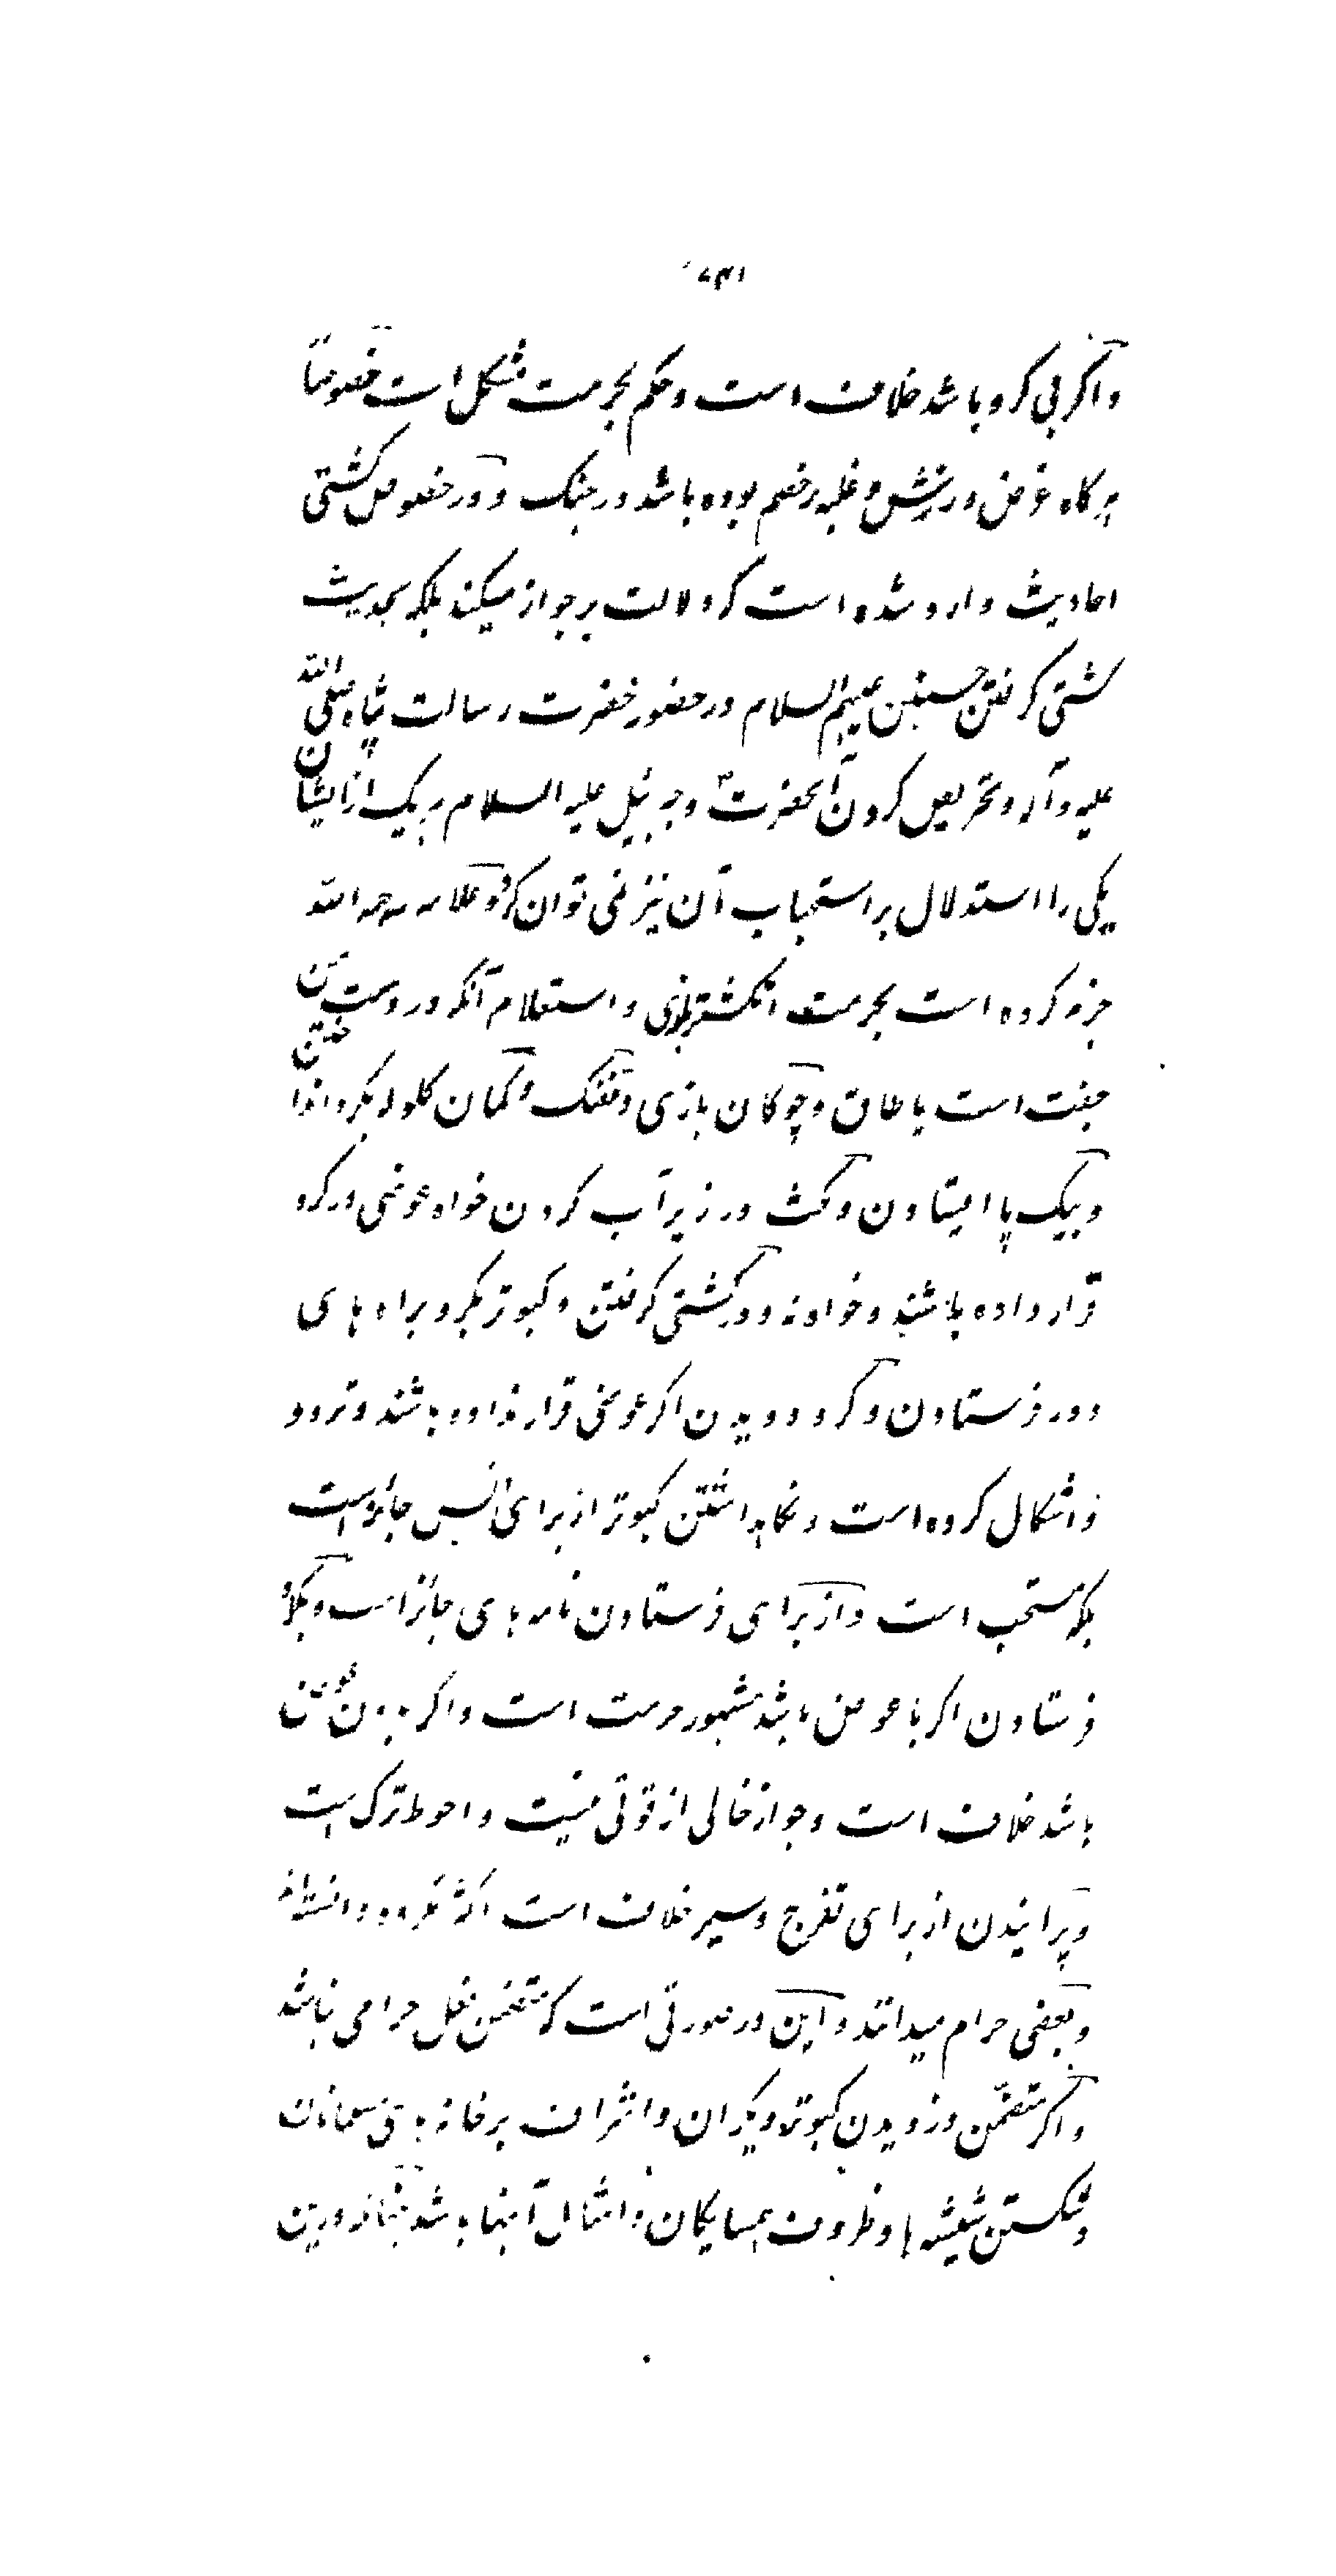 واکر بی کرو باشد خلاف است و حکم بحرمت مشکل است خصوصاً
هرکاه غرض ورزش و غلبه بر خصم بوده باشد در جنک و در خصوص کشتی
احادیث وارد شده است که دلالت بر جواز میکند بلکه بحدیث
کشتی کرفتن حسنین علیهم السلام در حضور حضرت رسالت پناه صلی الله
علیه و آله و تحریص کردن آنحضرت و جبرئیل علیه السلام هر یک از ایشان
یکی را استدلال بر استحباب آن نیز نمی توان کرد و علامه رحمه الله
جزم کرده است بحرمت انکشتر بازی و استعلام آنکه در دست من
جفت است یا طاق و چوکان بازی و تفنک و کمان کلوله بکرو انداختن
و بیک پا ایستادن و مکث در زیر آب کردن خواه عوضی در کرو
قرار داده باشند و خواه نه و در کشتی کرفتن و کبوتر بکرو براه های
دور فرستادن و کرو دویدن اکر عوضی قرار نداده باشند تردد
و اشکال کرده است و نکاهداشتن کبوتر از برای انس جائز است
بلکه مستحب است و از برای فرستادن نامه ها هم جائز است و بکرو
فرستادن اکر با عوض باشد مشهور حرمت است و اکر بدون عوض
باشد خلاف است و جواز خالی از قوتی نیست و احوط ترک است
و پرانیدن از برای تفرج و سیر خلاف است اکثر مکروه دانسته اند
و بعضی حرام میدانند و این در صورتی است که متضمن فعل حرامی نباشد
و اکر متضمن دزدیدن کبوتر دیکران و اشراف بر خانه های مسلمانان
و شکستن شیشه ها و ظروف همسایکان و امثال آینها باشد چنانکه درین